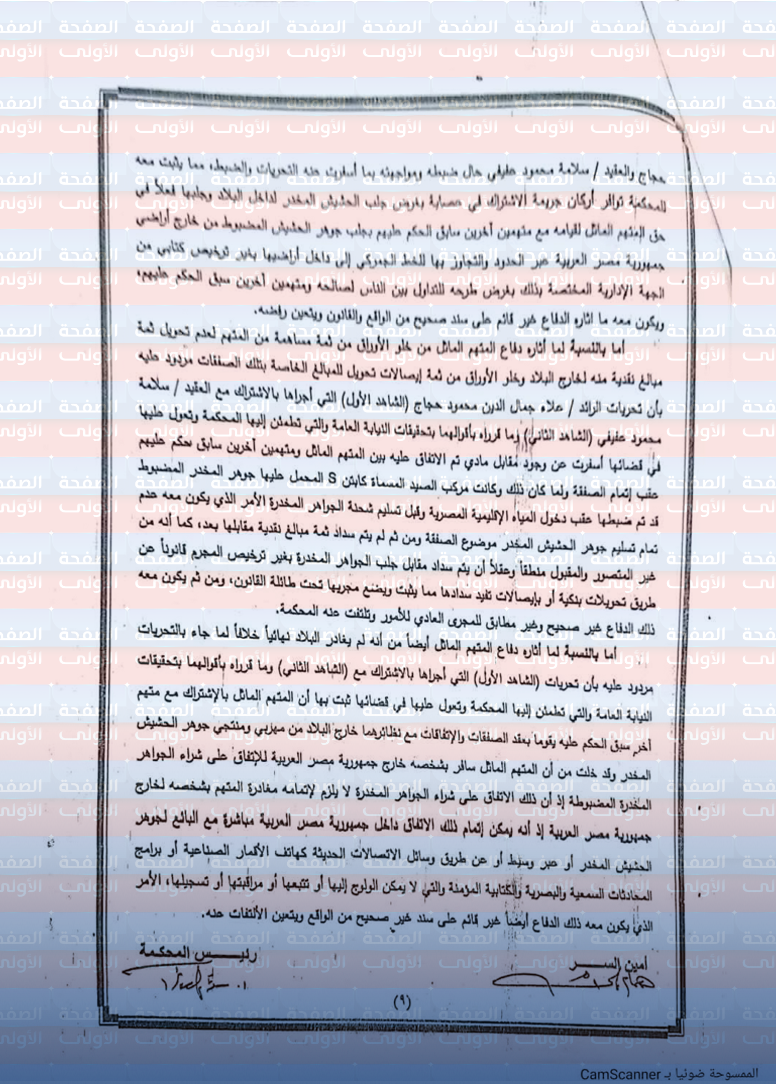 حجاج والعقيد / سلامة محمود عفيفي حال ضبطه ومواجهته بما أسفرت عنه التحريات والضبط، مما يثبت معه
للمحكمة توافر أركان جريمة الاشتراك في عصابة بغرض جلب الحشيش المخدر لداخل البلاد وجلبها فعلاً في
حق المتهم الماثل لقيامه مع متهمين أخرين سابق الحكم عليهم بجلب جوهر الحشيش المضبوط من خارج أراضي
جمهورية مصر العربية عبر الحدود والتجاوز بها للخط الجمركي إلى داخل أراضيها بغير ترخيص كتابي من
الجهة الإدارية المختصة بذلك بغرض طرحه للتداول بين الناس لصالحه ومتهمين أخرين سبق الحكم عليهم،
ويكون معه ما اثاره الدفاع غير قائم على سند صحيح من الواقع والقانون ويتعين رفضه.
أما بالنسبة لما أثاره دفاع المتهم الماثل من خلو الأوراق من ثمة مساهمة من المتهم لعدم تحويل ثمة
مبالغ نقدية منه لخارج البلاد وخلو الأوراق من ثمة إيصالات تحويل للمبالغ الخاصة بتلك الصفقات مردود عليه
بأن تحريات الرائد / علاء جمال الدين محمود حجاج (الشاهد الأول) التي أجراها بالاشتراك مع العقيد / سلامة
محمود عفيفي (الشاهد الثاني) وما قرراه بأقوالهما بتحقيقات النيابة العامة والتي تطمئن إليها المحكمة وتعول عليها
في قضائها أسفرت عن وجود مقابل مادي تم الاتفاق عليه بين المتهم الماثل ومتهمين أخرين سابق حكم عليهم
عقب إتمام الصفقة ولما كان ذلك وكانت مركب الصيد المسماة كابتن S المحمل عليها جوهر المخدر المضبوط
قد تم ضبطها عقب دخول المياه الإقليمية المصرية وقبل تسليم شحنة الجواهر المخدرة الأمر الذي يكون معه عدم
تمام تسليم جوهر الحشيش المخدر موضوع الصفقة ومن ثم لم يتم سداد ثمة مبالغ نقدية مقابلها بعد، كما أنه من
غير المتصور والمقبول منطقاً وعقلاً أن يتم سداد مقابل جلب الجواهر المخدرة بغير ترخيص المجرم قانوناً عن
طريق تحويلات بنكية أو بإيصالات تفيد سدادها مما يثبت ويضع مجريها تحت طائلة القانون، ومن ثم يكون معه
ذلك الدفاع غير صحيح وغير مطابق للمجرى العادي للأمور وتلتفت عنه المحكمة.
أما بالنسبة لما أثاره دفاع المتهم الماثل أيضاً من أنه لم يغادر البلاد نهائياً خلافاً لما جاء بالتحريات
مردود عليه بأن تحريات (الشاهد الأول) التي أجراها بالاشتراك مع (الشاهد الثاني) وما قرراه بأقوالهما بتحقيقات
النيابة العامة والتي تطمئن إليها المحكمة وتعول عليها في قضائها ثبت بها أن المتهم الماثل بالإشتراك مع متهم
أخر سبق الحكم عليه يقوما بعقد الصفقات والإتفاقات مع نظائرهما خارج البلاد من مهربي ومنتجي جوهر الحشيش
المخدر وقد خلت من أن المتهم الماثل سافر بشخصه خارج جمهورية مصر العربية للإتفاق على شراء الجواهر
المخدرة المضبوطة إذ أن ذلك الاتفاق على شراء الجواهر المخدرة لا يلزم لإتمامه مغادرة المتهم بشخصه لخارج
جمهورية مصر العربية إذ أنه يمكن إتمام ذلك الاتفاق داخل جمهورية مصر العربية مباشرة مع البائع لجوهر
الحشيش المخدر أو عبر وسيط أو عن طريق وسائل الاتصالات الحديثة كهاتف الأقمار الصناعية أو برامج
المحادثات السمعية والبصرية والكتابية المؤمنة والتي لا يمكن الولوج إليها أو تتبعها أو مراقبتها أو تسجيلها، الأمر
الذي يكون معه ذلك الدفاع أيضاً غير قائم على سند غير صحيح من الواقع ويتعين الألتفات عنه.
أمين السر
رئيس المحكمة
(٩)
الممسوحة ضوئيا بـ CamScanner
الصفحة الأولى